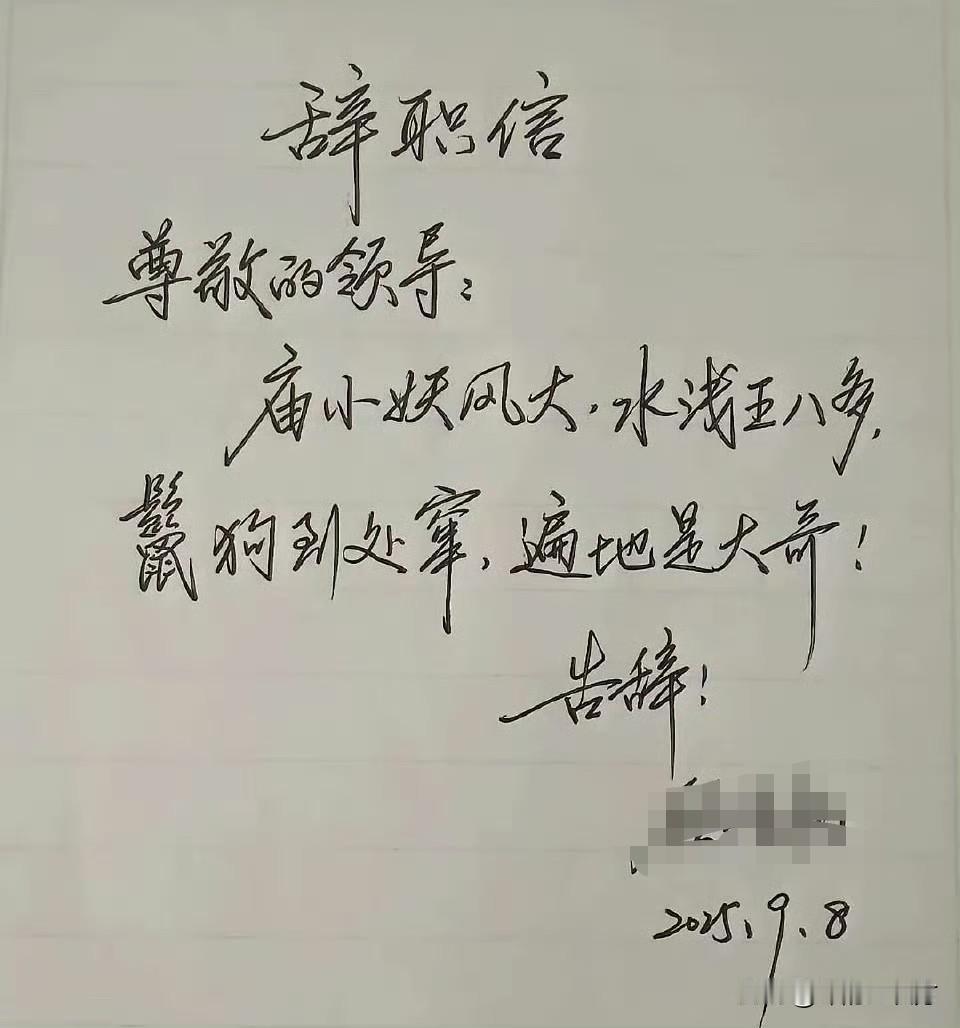 辞职信
尊敬的领导：
庙小妖风大，水浅王八多，
鬣狗到处窜，遍地是大哥！
告辞！
2025.9.8